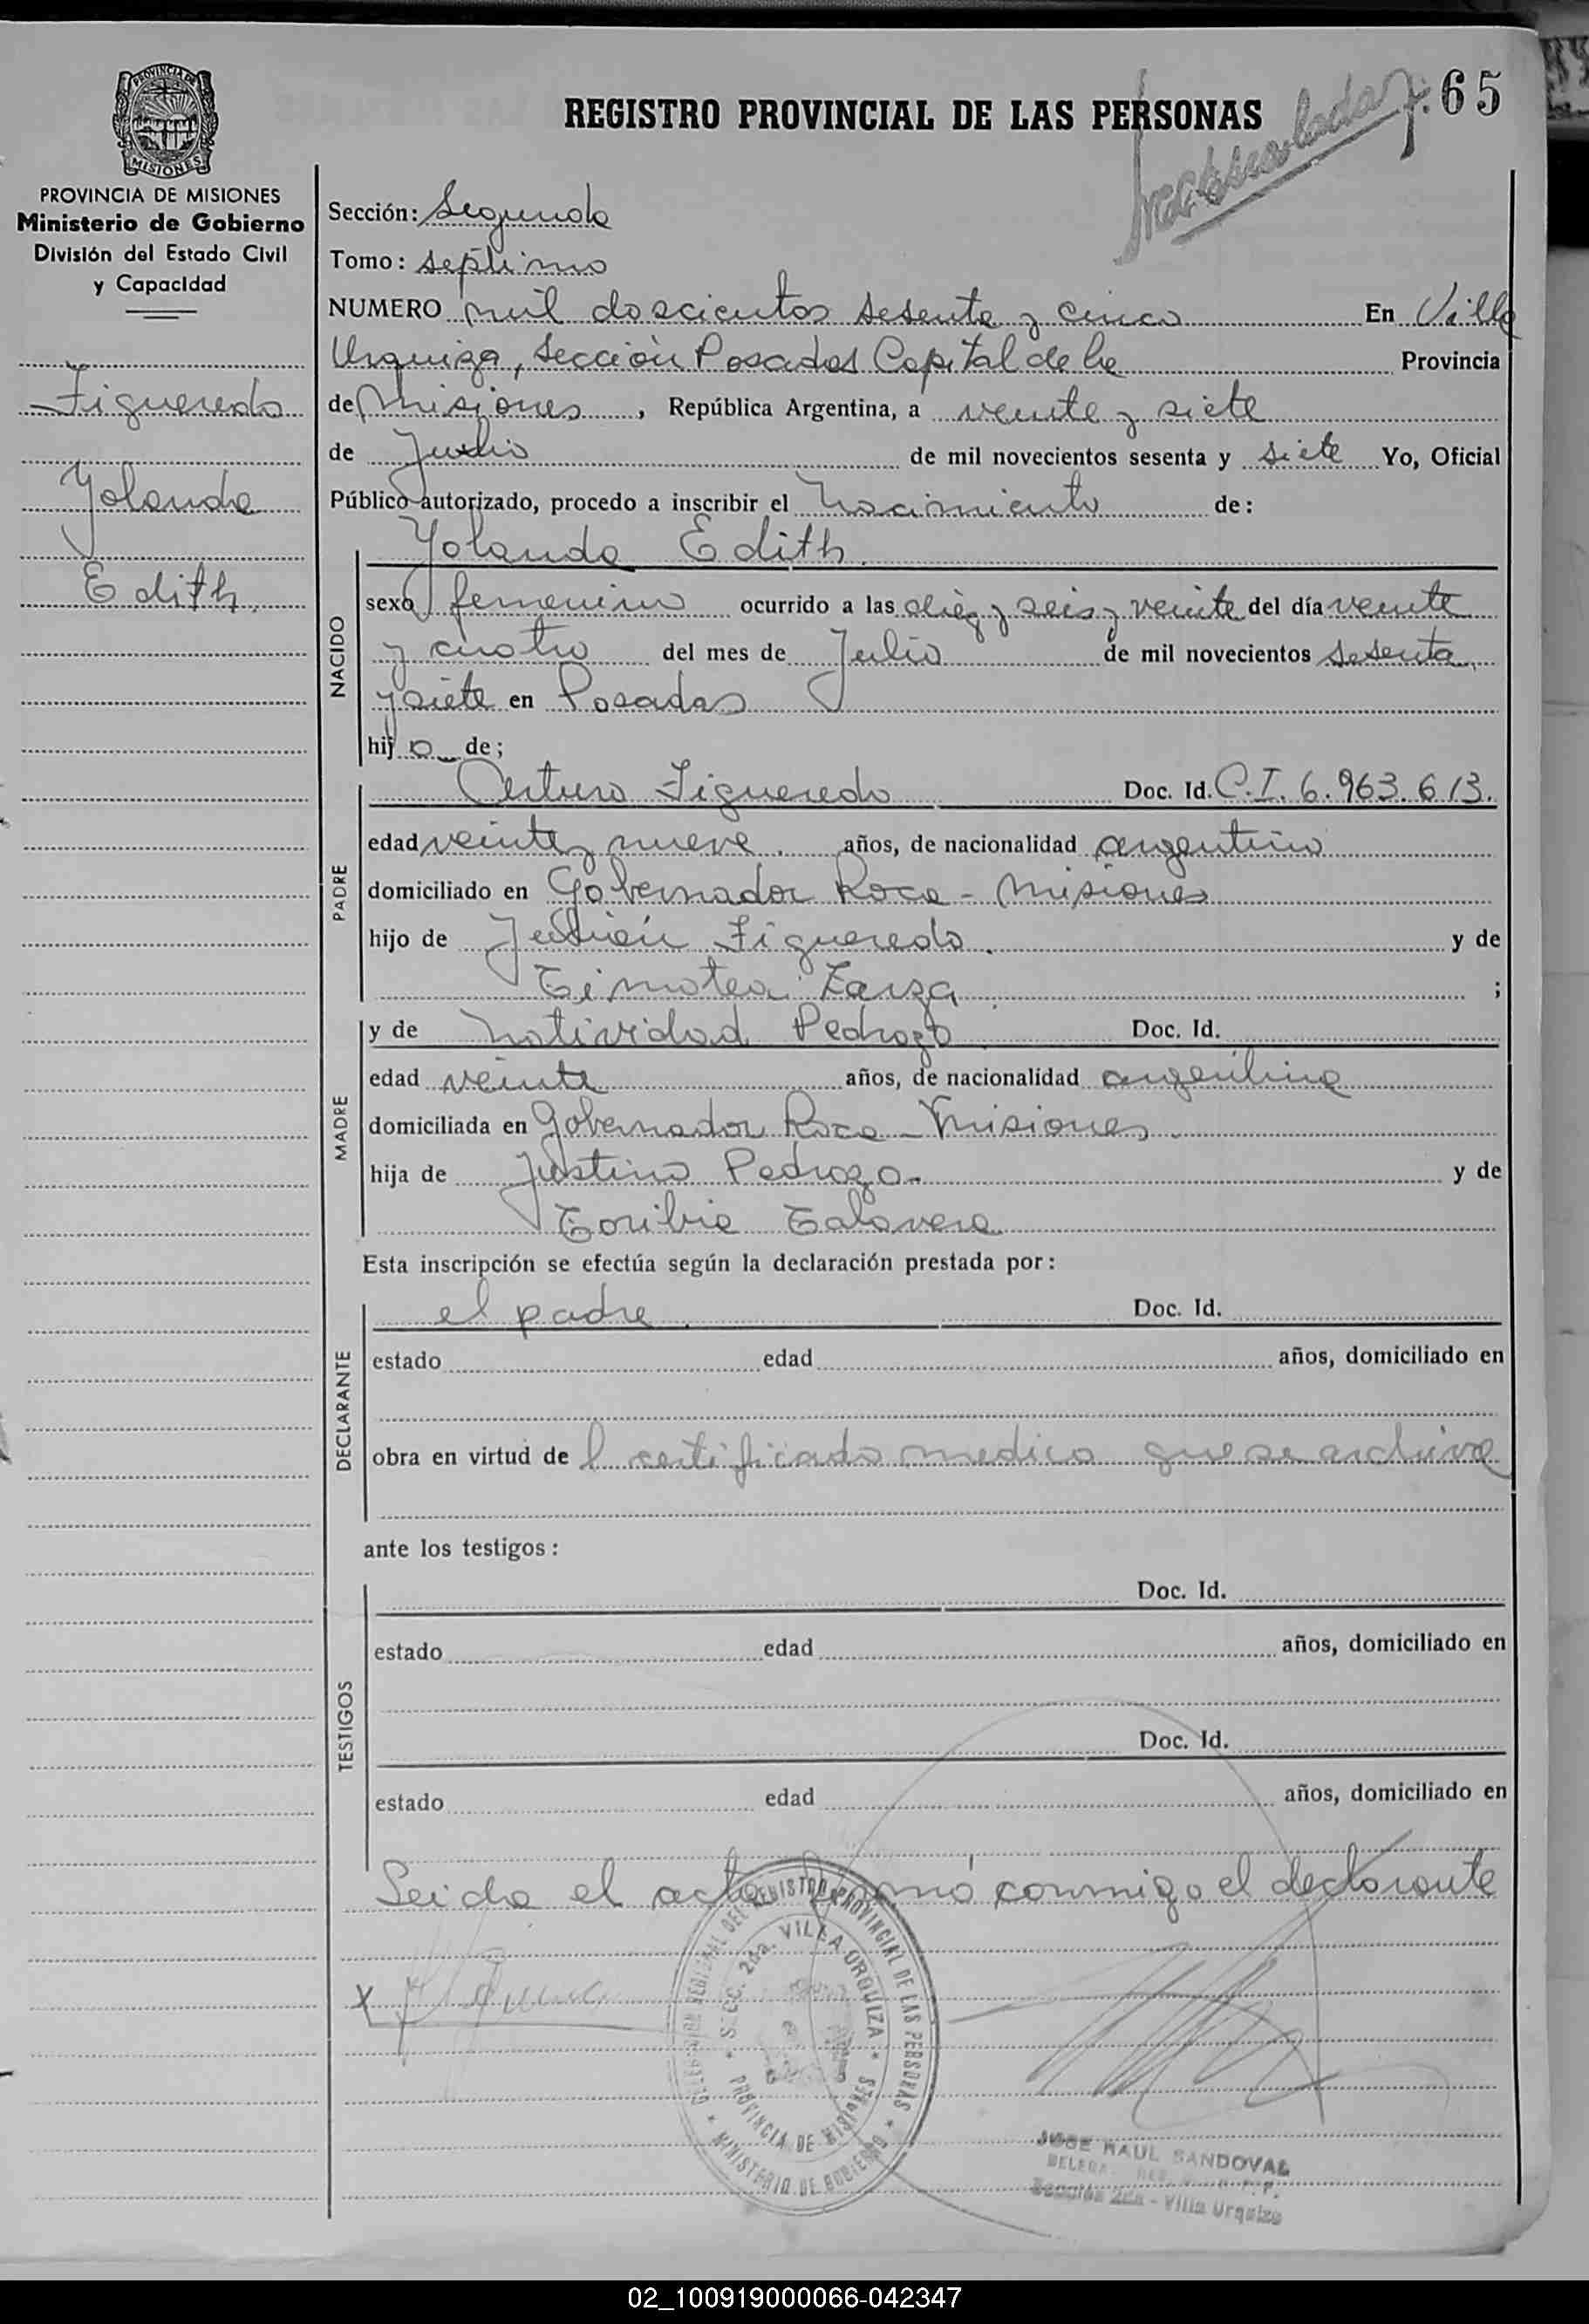 REGISTRO PROVINCIAL DE LAS PERSONAS
F: 65
PROVINCIA DE MISIONES
PROVINCIA DE MISIONES
Ministerio de Gobierno
División del Estado Civil
y Capacidad
Figueredo
Yolanda
Edith.
Sección: Segunda
Tomo: septimo
NUMERO mil doscientos sesenta y cinco En Villa
Urquiza, Sección Posadas Capital de la Provincia
de Misiones, República Argentina, a veinte y siete
de Julio de mil novecientos sesenta y siete Yo, Oficial
Público autorizado, procedo a inscribir el Nacimiento de:
NACIDO
Yolanda Edith.
sexo femenino ocurrido a las diez y seis y veinte del día veinte
y cuatro del mes de Julio de mil novecientos sesenta
y siete en Posadas
hija de;
PADRE
Arturo Figueredo Doc. Id. C.I. 6.963.613.
edad veinte y nueve. años, de nacionalidad argentino
domiciliado en Gobernador Roca - Misiones
hijo de Figueredo. y de
Timotea Zarza ;
MADRE
y de Natividad Pedrozo Doc. Id.
edad veinte años, de nacionalidad argentina
domiciliada en Gobernador Roca - Misiones.
hija de Justino Pedrozo - y de
Toribia Talavera
Esta inscripción se efectúa según la declaración prestada por:
DECLARANTE
el padre. Doc. Id.
estado edad años, domiciliado en
obra en virtud del certificado medico que se archiva
ante los testigos:
TESTIGOS
Doc. Id.
estado edad años, domiciliado en
Doc. Id.
estado edad años, domiciliado en
Leida el acta firmó conmigo el declarante
X
REGISTRO PROVINCIAL DE LAS PERSONAS
SECC. 2da. VILLA URQUIZA
PROVINCIA DE MISIONES
MINISTERIO DE GOBIERNO
JOSE RAUL SANDOVAL
Sección 2da - Villa Urquiza
02_100919000066-042347